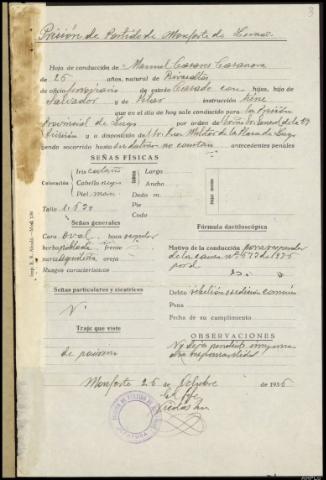 Prisión de Partido de Monforte de Lemos
Hoja de conducción de Manuel Casares Casanova
de 26 años, natural de Rivasaltas
de oficio ferroviario de Estado Casado con hijos, hijo de
Salvador y de Pilar instrucción tiene
que en el día de hoy sale conducido para la Prisión
provincial de Lugo por orden de General de la 8ª
División y a disposición del Sr. Juez Militar de la Plaza de Lugo
yendo socorrido hasta no constan antecedentes penales
SEÑAS FÍSICAS
Coloración
Iris castaño
Cabello negro
Piel
Talla 1.620
Oreja
Largo
Ancho
Medio
Pie
Codo
Señas generales
Cara oval boca regular
barba poblada frente
nariz aguileña oreja
Rasgos característicos
Señas particulares y cicatrices
Traje que viste
de paisano
Fórmula dactiloscópica
Motivo de la conducción para responder
de la causa nº 577 de 1936
por el
Delito rebelión
Pena
Fecha de su cumplimiento
OBSERVACIONES
No deja pendiente ninguna
otra responsabilidad
Monforte 26 de Octubre de 1936
El Jefe